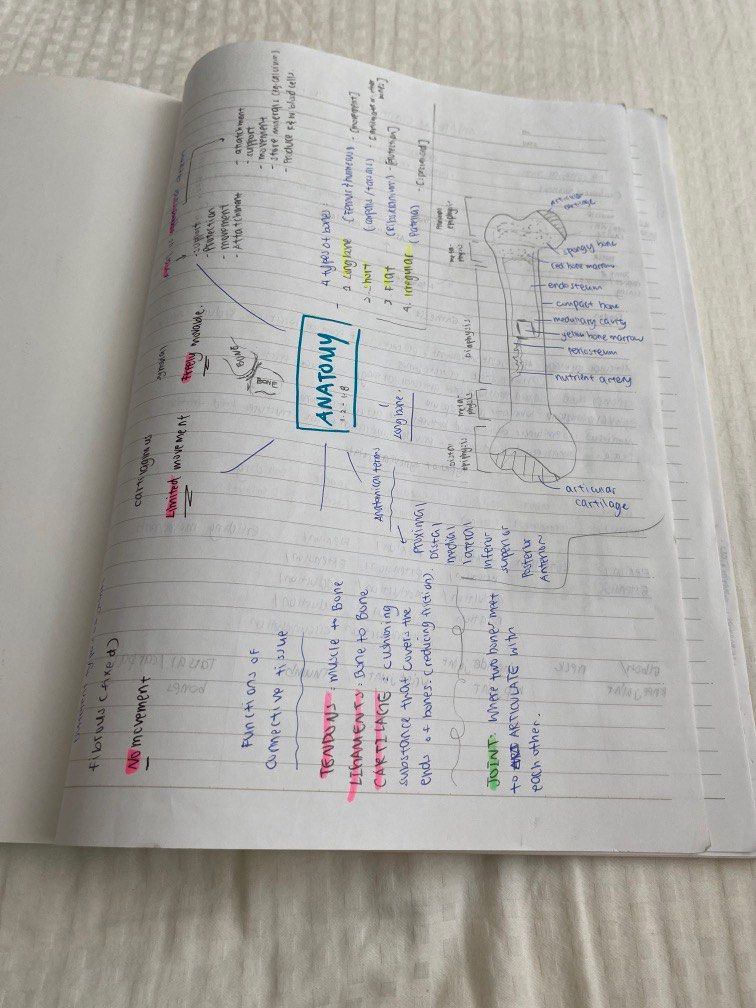 fibrous (fixed)
NO movement
cartilaginous
Limited movement
synovial
freely movable.
- support
- Protection
- movement
- Attatchment
- anatchment
- support
- movement
- store minerals (eg calcium)
- Produce red blood cells.
BONE
BONE
ANATOMY
1.2 - 1.8
4 types of bones:
1. Long bone (femur & humerus) - [movement]
2. short (carpals / tarsals)
3. Flat (ribs / cranium) - [protection]
4. irregular (Patella)
Functions of
connective tissue
TENDONS: muscle to Bone
LIGAMENTS: Bone to Bone
CARTILAGE: cushioning
substance that covers the
ends of bones. (reducing friction).
JOINT: Where two bones meet
to ARTICULATE with
each other.
Anatomical terms
Proximal
Distal
medial
lateral
inferior
superior
Posterior
Anterior
Long bone.
Distal epiphysis
meta physis
Diaphysis
meta physis
Proximal epiphysis
articular
cartilage
spongy bone
red bone marrow
endosteum
compact bone
medullary cavity
yellow bone marrow
periosteum
nutrient artery
articular
cartilage